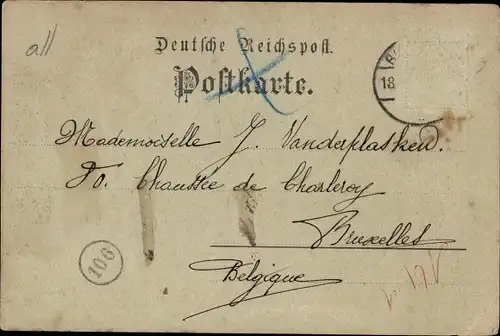 all
Deutsche Reichspost.
Postkarte.
18
Mademoiselle J. Vanderplasken.
70. Chaussée de Charleroy
Bruxelles
Belgique
106